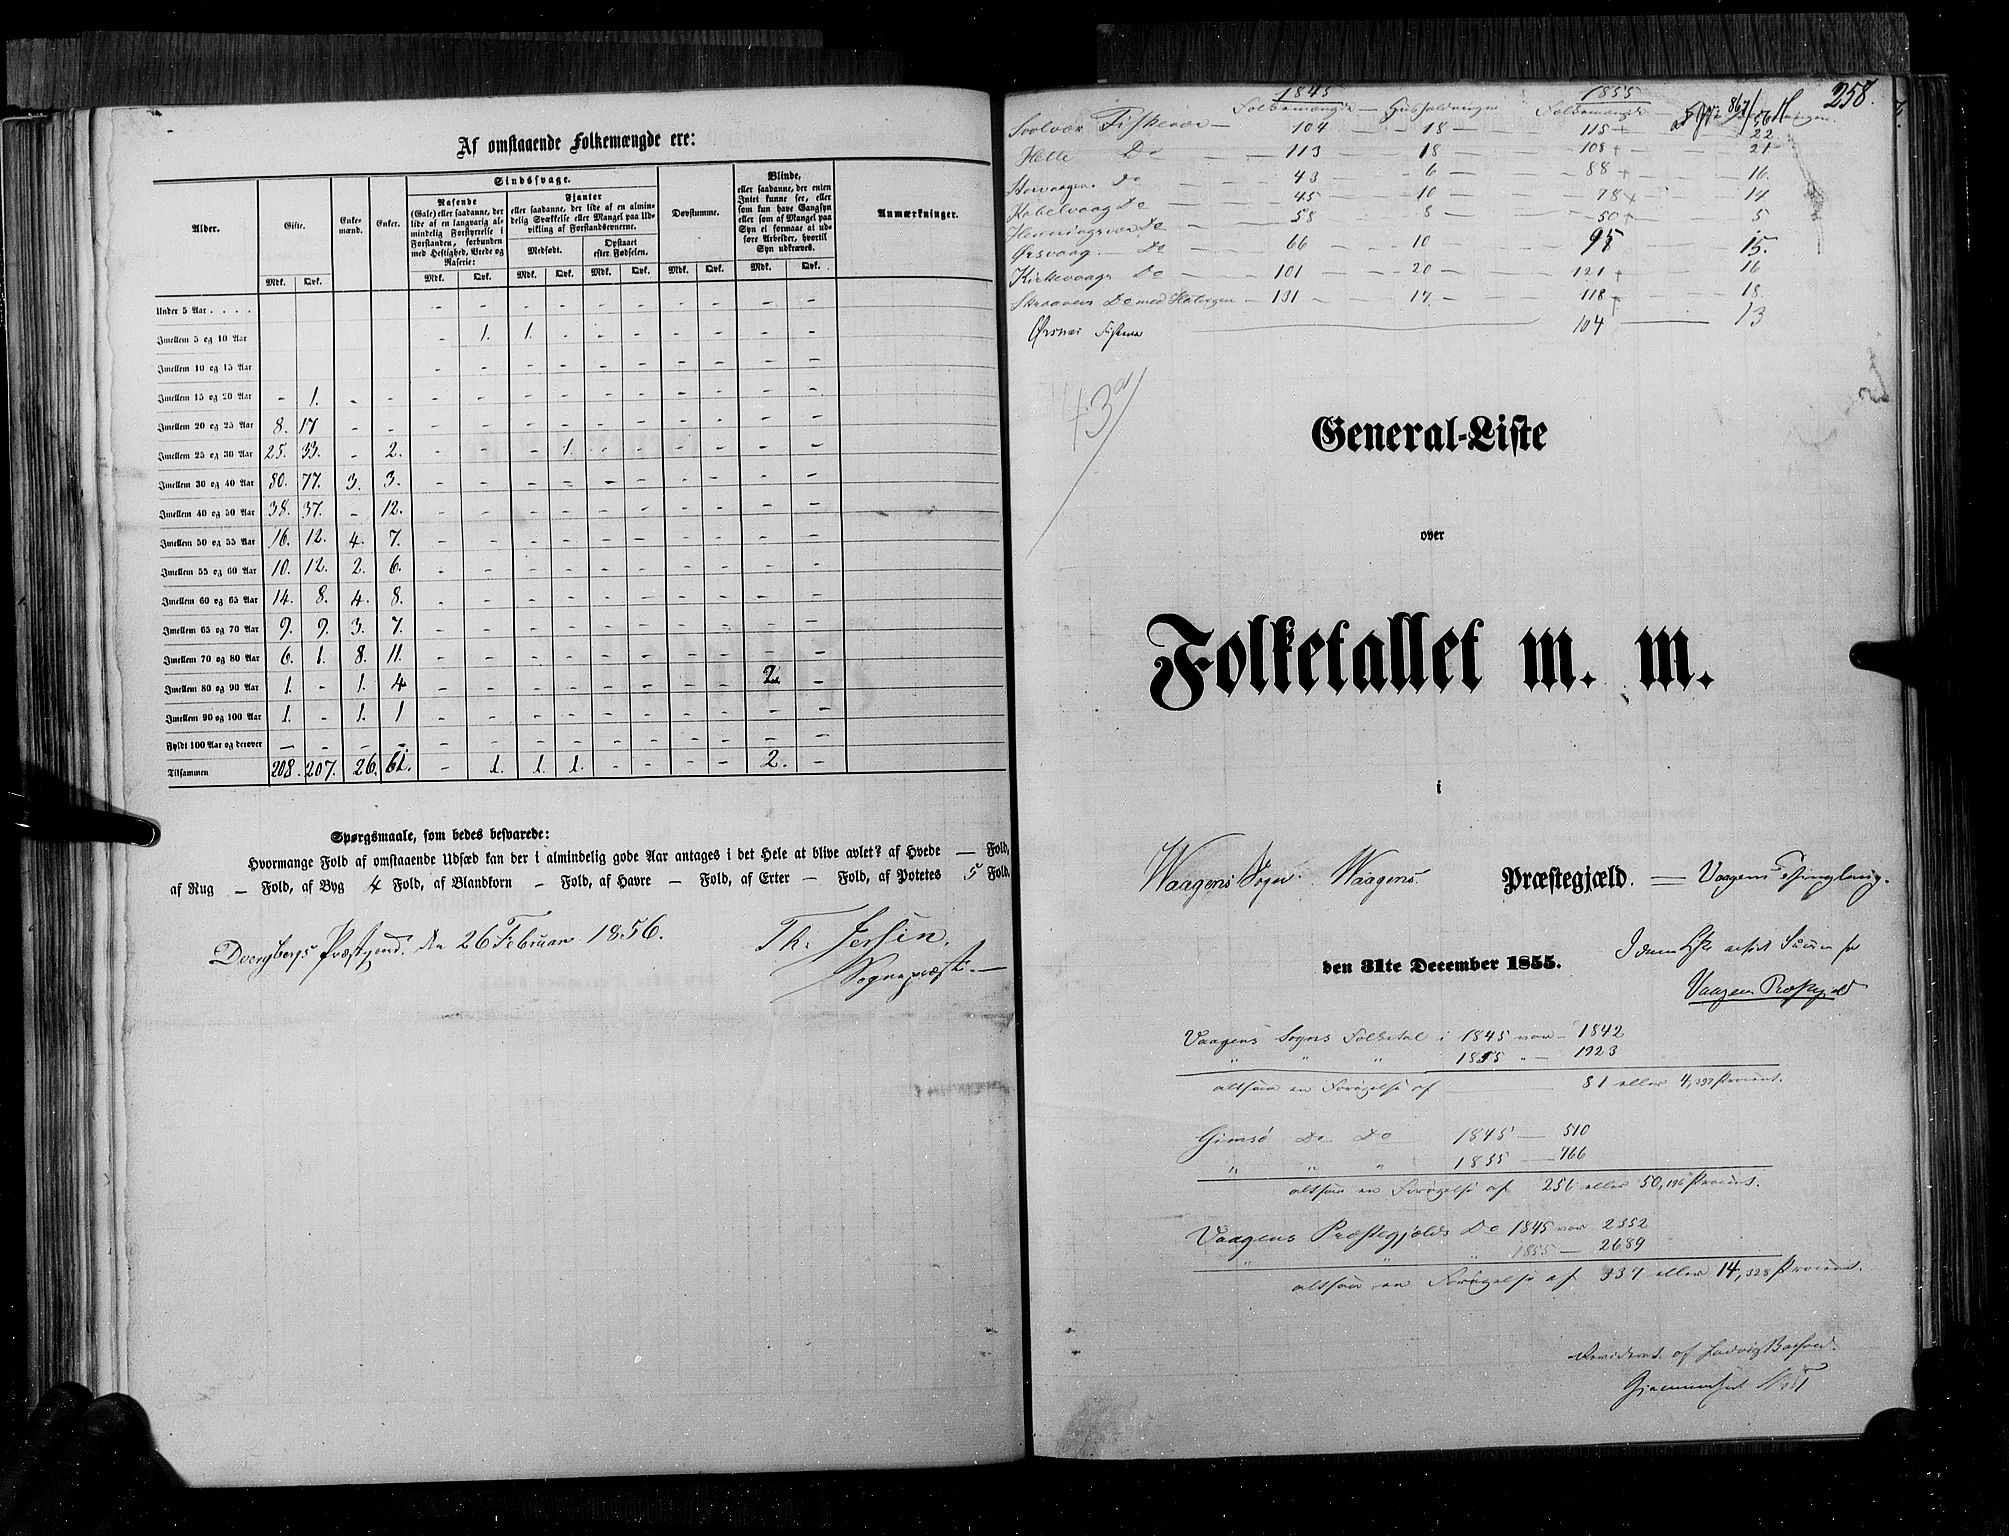 Af omstaaende Folkemængde ere:
Alder. Gifte. Enkemænd. Enker. Sindssvage. Døvstumme. Blinde, eller saadanne, der enten Intet kunne see, eller som kun have Gangsyn eller som af Mangel paa Syn ei formaae at udføre Arbeider, hvortil Syn udkræves. Anmærkninger.
Rasende (Gale) eller saadanne, der lide af en langvarig almindelig Forstyrrelse i Forstanden, forbunden med Heftighed, Vrede og Raserie:
Fjanter eller saadanne, der lide af en almindelig Svækkelse eller Mangel paa Udvikling af Forstandsevnerne.
Medfødt. Opstaaet efter Fødselen.
Mdk. Qvk. Mdk. Qvk. Mdk. Qvk. Mdk. Qvk. Mdk. Qvk. Mdk. Qvk.
Under 5 Aar . . . . - - - - - - - - - -
Imellem 5 og 10 Aar - 1. 1. - - - - - - -
Imellem 10 og 15 Aar - - - - - - - - - -
Imellem 15 og 20 Aar - 1. - - - - - - - - - - - -
Imellem 20 og 25 Aar 8. 17 - - - - - - - - - - - -
Imellem 25 og 30 Aar 25. 33. - 2. - - - 1. - - - - - -
Imellem 30 og 40 Aar 80. 77. 3. 3. - - - - - - - - - -
Imellem 40 og 50 Aar 38. 37. - 12. - - - - - - - - - -
Imellem 50 og 55 Aar 16. 12. 4. 7. - - - - - - - - - -
Imellem 55 og 60 Aar 10. 12. 2. 6. - - - - - - - - - -
Imellem 60 og 65 Aar 14. 8. 4. 8. - - - - - - - - - -
Imellem 65 og 70 Aar 9. 9. 3. 7. - - - - - - - - - -
Imellem 70 og 80 Aar 6. 1. 8. 11. - - - - - - - - - -
Imellem 80 og 90 Aar 1. - 1. 4 - - - - - - - - 2. -
Imellem 90 og 100 Aar 1. - 1. 1 - - - - - - - - - -
Fyldt 100 Aar og derover - - - - - - - - - - - - - -
Tilsammen 208. 207. 26. 61. - 1. 1. 1. - - - - 2. -
Spørgsmaale, som bedes besvarede:
Hvormange Fold af omstaaende Udsæd kan der i almindelig gode Aar antages i det Hele at blive avlet? af Hvede — Fold,
af Rug — Fold, af Byg 4 Fold, af Blandkorn — Fold, af Havre — Fold, af Erter — Fold, af Potetes 5 Fold.
Dverybergs Præstgjeld. den 26 Februar 1856. Th. Jessen.
Sognepræst.
258.
1845 1855
Folkemængde — Husholdninger Folkemængde
Svolvær Fiskevær — 104 — 18 — 115 + 22
Helle Do — 113 — 18 — 108 + 21
Storvaagen Do — 43 — 6 — 88 + 16.
Kabelvaag Do — 45 — 10 — 78 + 14
Henningsvær Do — 58 — 8 — 50 + 5
Ørsvaag — Do — 66 — 10 — 95 15.
Kirkevaag Do — 101 — 20 — 121 + 16
Skraaven Do med — 131 — 17. — 118 + 18.
Ørsnes Fiskevær 104 — 13
43 a/
General-Liste
over
Folketallet m. m.
i
Waagens Sogn. Waagens. Præstegjæld. — Vaagens Thinglaug.
den 31te December 1855.
Vaagens Præstegjeld
Vaagens Sogns Folketal i 1845 var — 1842
" " " 1855 " — 1923
altsaa en Forøgelse af — 81 eller 4,397 Procent.
Gimsø Do Do 1845 — 510
" " " 1855 — 766
altsaa en Forøgelse af 256 eller 50,196 Procent.
Vaagens Præstegjelds Do 1845 var 2352
" " " 1855 — 2689
altsaa en Forøgelse af 337 eller 14,328 Procent.
Revideret af Ludvig